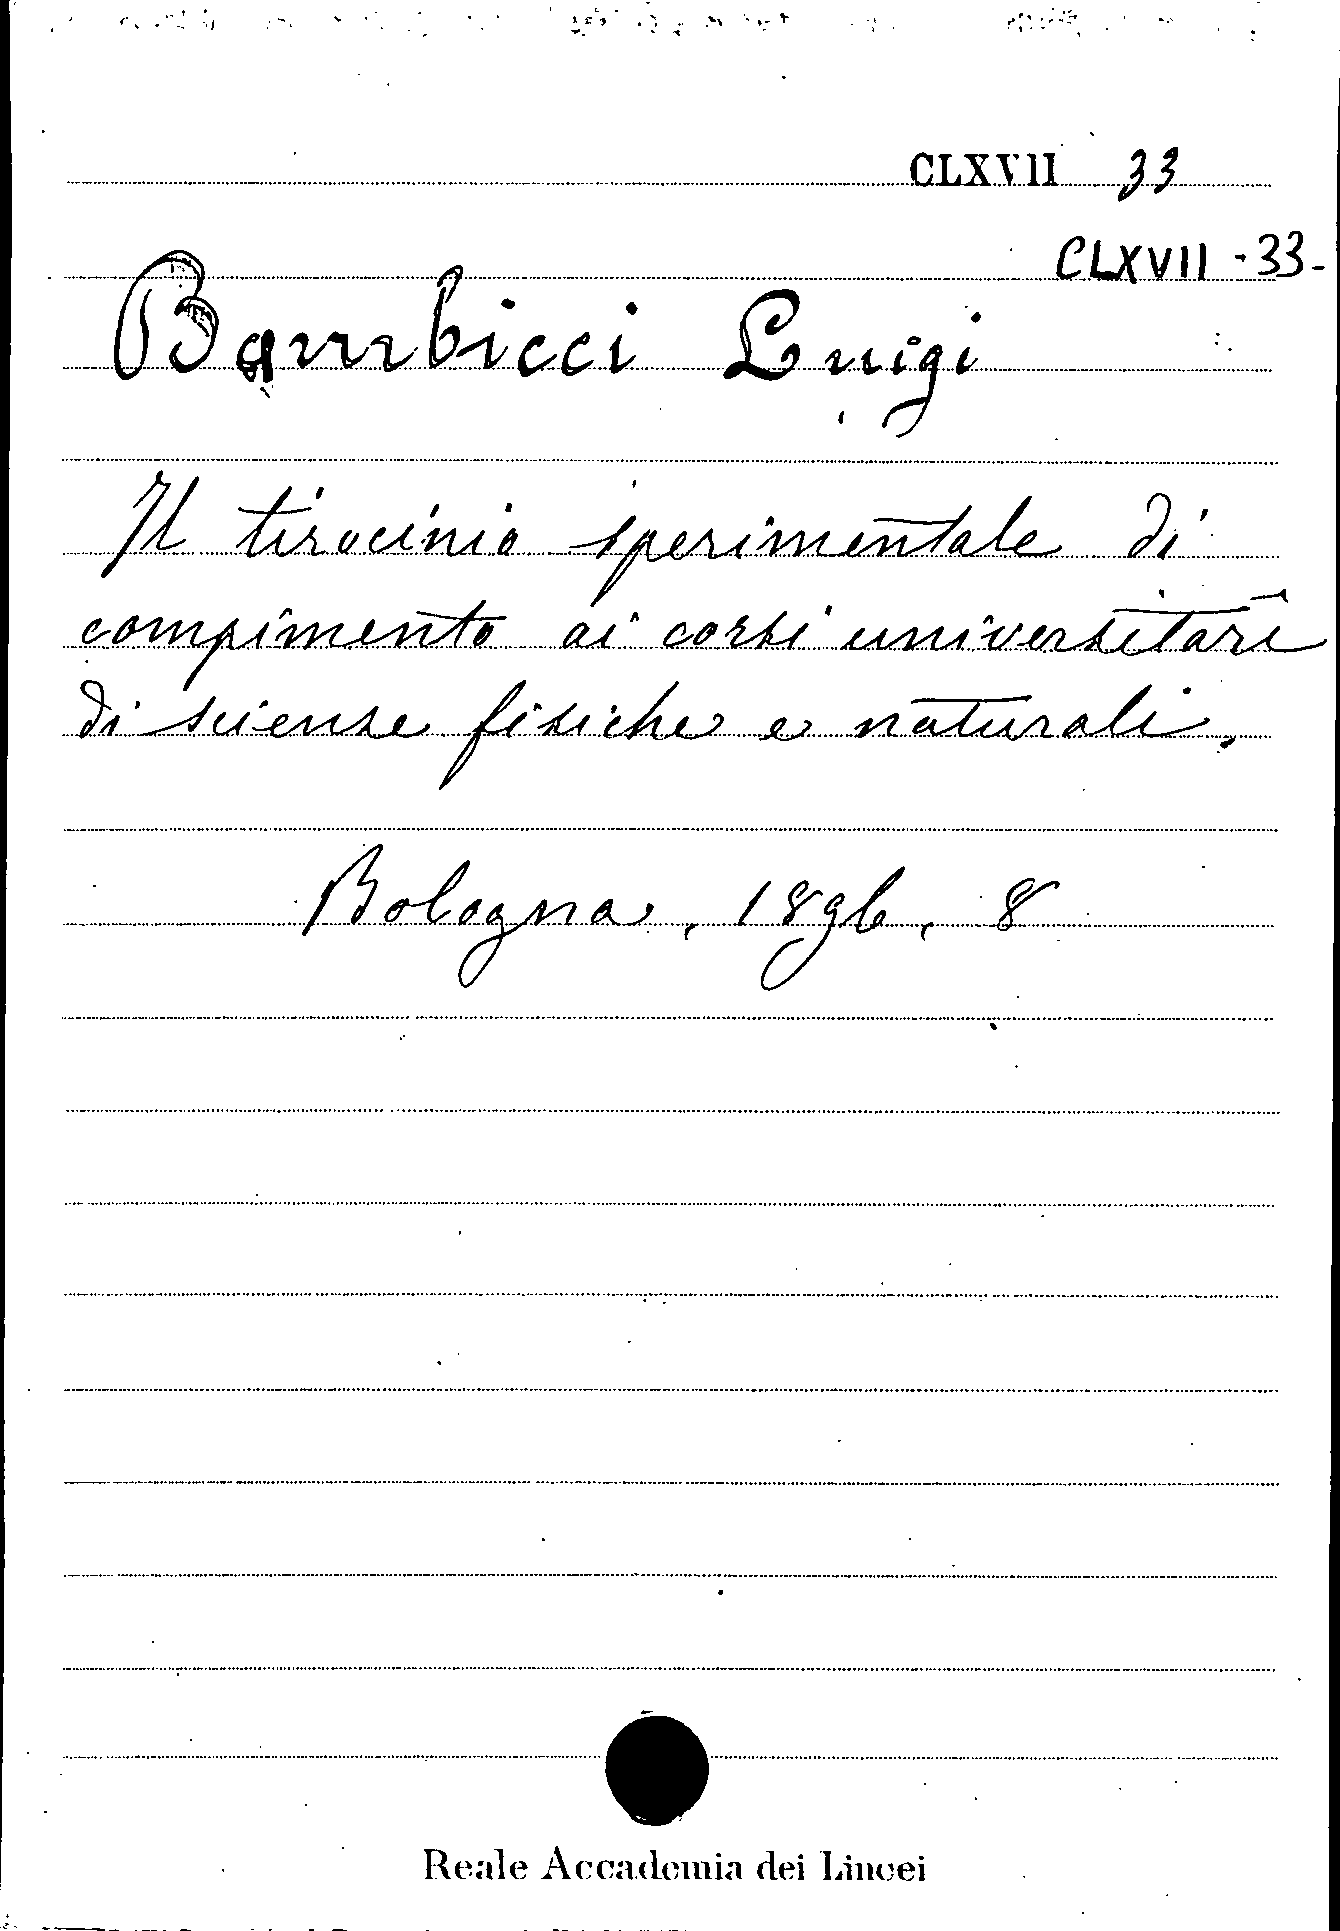 CLXVII 33
CLXVII - 33 -
Bambicci Luigi
Il tirocinio sperimentale di
compimento ai corsi universitarî
di scienze fisiche e naturali.
Bologna, 1896, 8
Reale Accademia dei Lincei